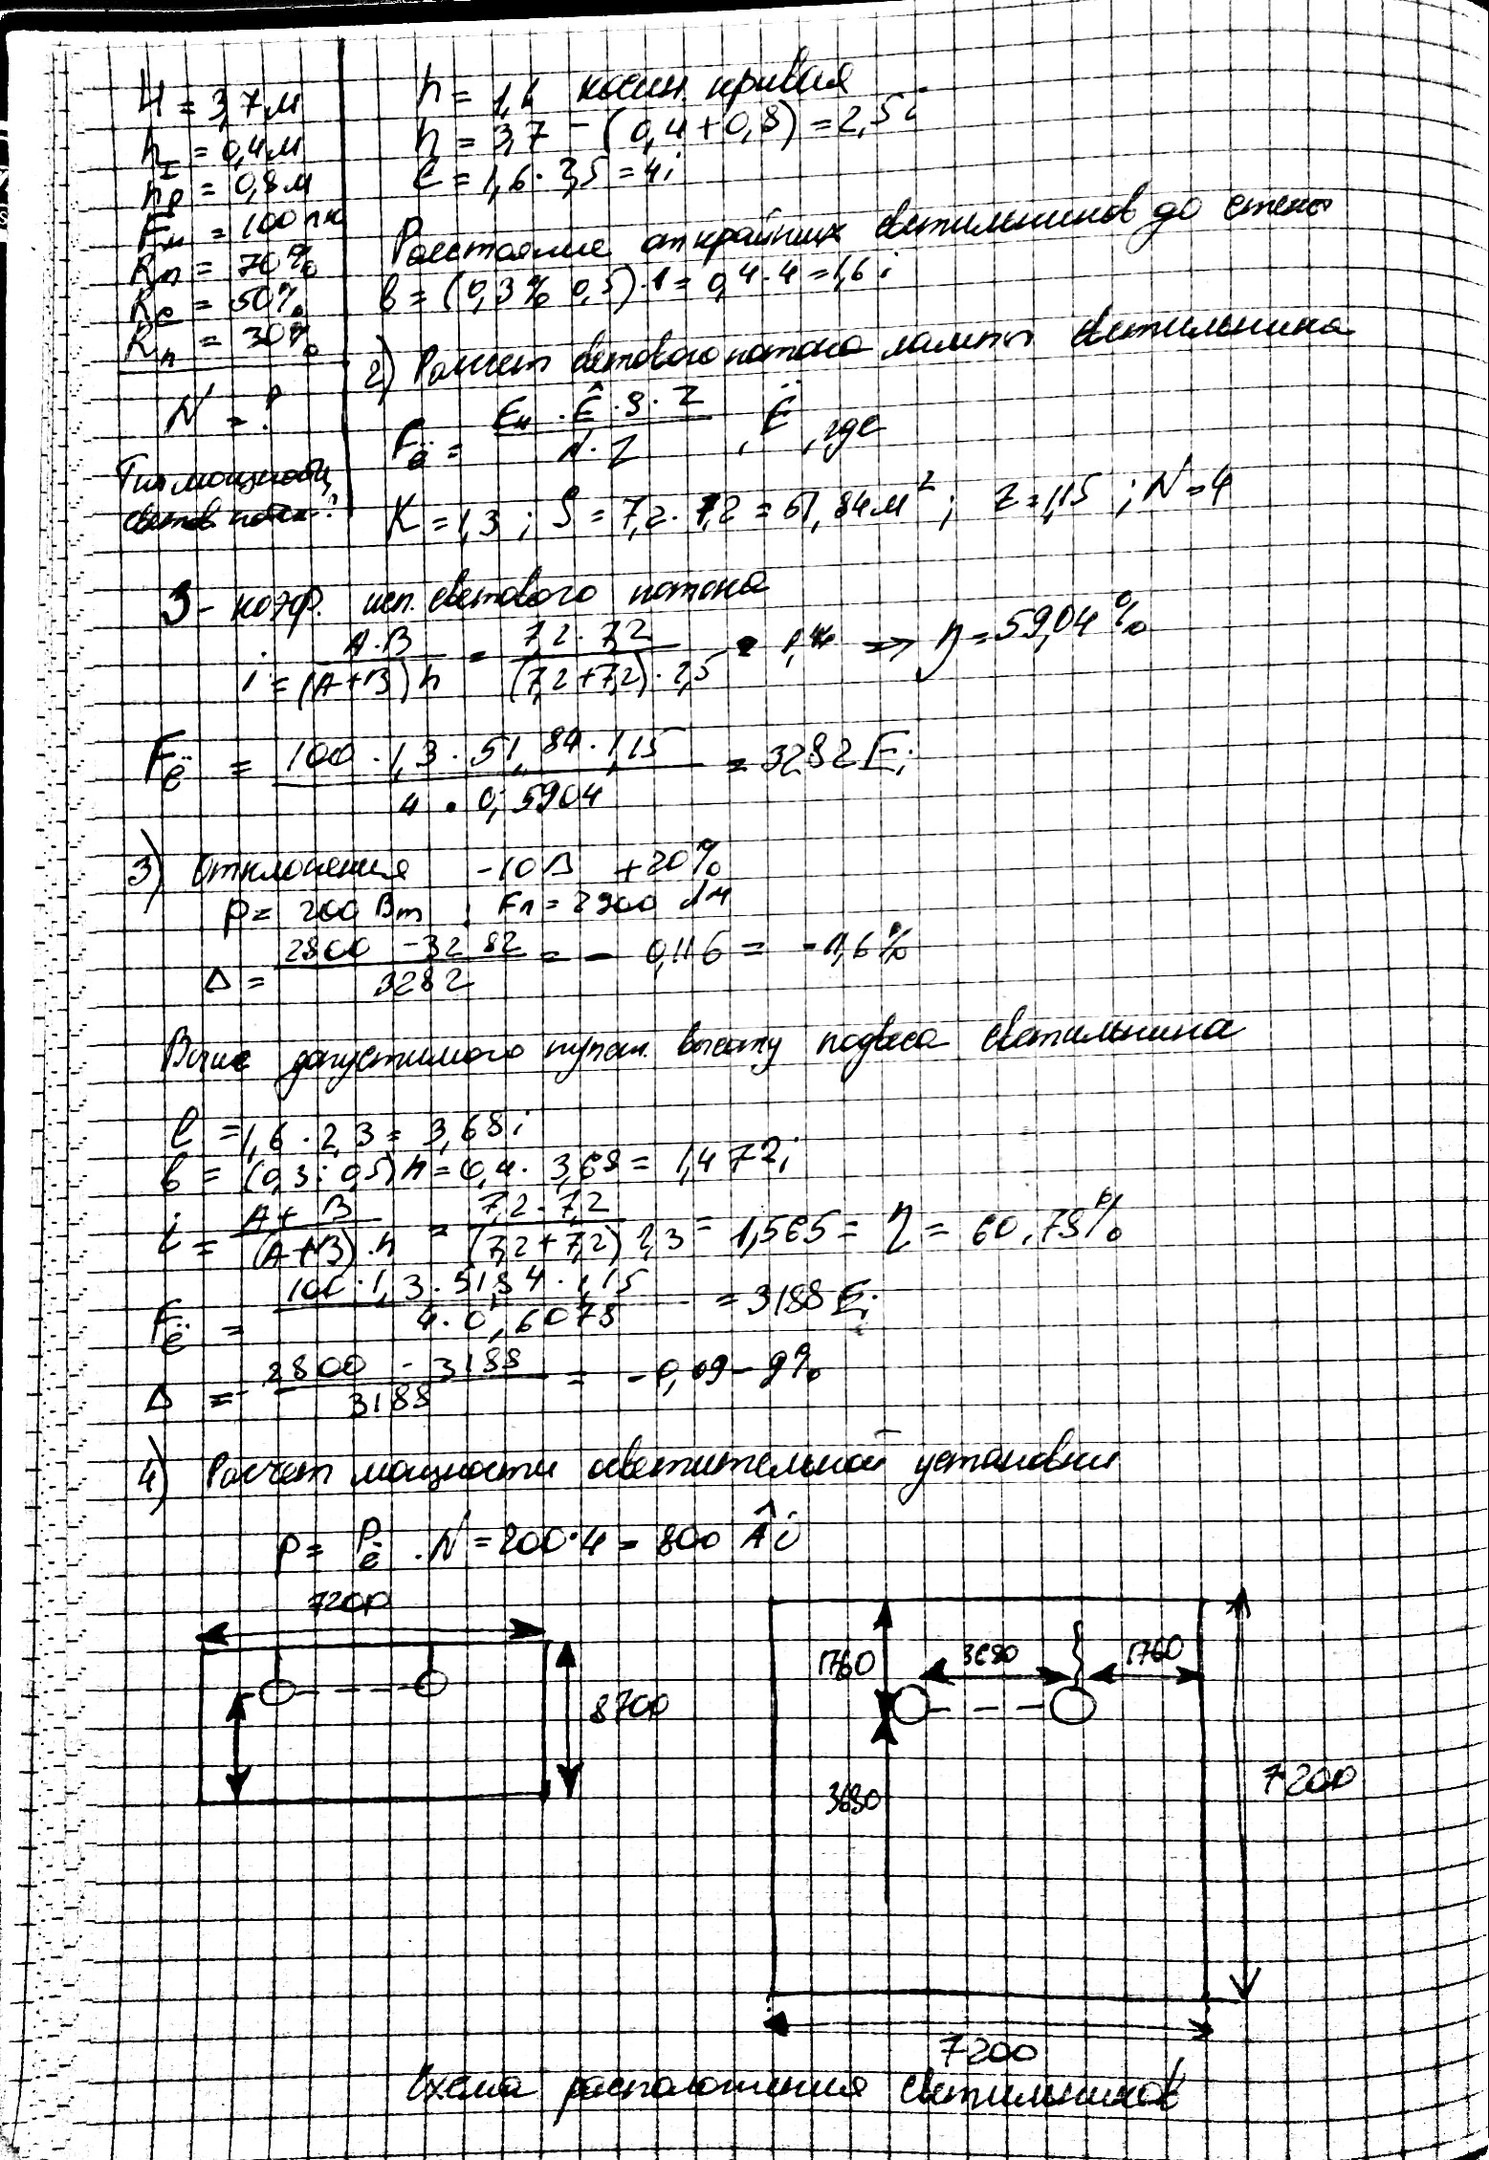 H = 3,7 м
h = 0,4 м
hр = 0,8 м
Eн = 100 лк
Rп = 70%
Rс = 50%
Rп = 30%
N = ?
Тип мощности,
светов поток?
h = 1,6 косин. кривая
h = 3,7 - (0,4 + 0,8) = 2,5 i
ℓ = 1,6 · 2,5 = 4 i
Расстояние от крайних светильников до стены
в = (0,3 % 0,5) · 1 = 0,4 · 4 = 1,6 i
2) Расчет светового потока лампы светильника
Fё = Eн · Ê · S · Z / N · Z , Ё , где
K = 1,3 ; S = 7,2 · 7,2 = 51,84 м² ; z = 1,15 ; N = 4
З - коэф. исп. светового потока
i = A·B / (A+B) h = 7,2 · 7,2 / (7,2 + 7,2) · 2,5 = 1,4 => η = 59,04 %
Fё = 100 · 1,3 · 51,84 · 1,15 / 4 · 0,5904 = 3282 Е;
3) Отклонения -10 В +20%
P = 200 Вт ; Fл = 2900 лм
Δ = 2800 - 3282 / 3282 = - 0,116 = - 1,6%
Выше допустимого высоту подвеса светильника
ℓ = 1,6 · 2,3 = 3,68 i
в = (0,3 : 0,5) h = 0,4 · 3,68 = 1,472 i
i = A + B / (A + B) · h = 7,2 · 7,2 / (7,2 + 7,2) 2,3 = 1,565 = η = 60,78%
Fё = 100 · 1,3 · 51,84 · 1,15 / 4 · 0,6078 = 3188 Е;
Δ = 2800 - 3188 / 3188 = - 0,09 - 9%
4) Расчет мощности осветительной установки
P = Pё · N = 200 · 4 = 800 Âò
7200
8700
1760
3680
1760
3680
7200
7200
Схема расположения светильников